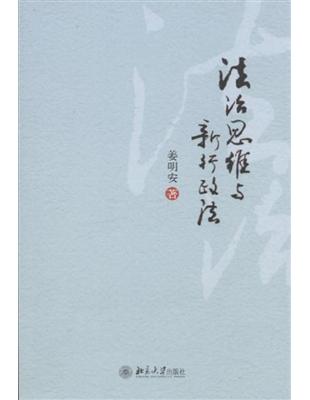 法治思维与
新行政法
姜明安
著
北京大学出版社